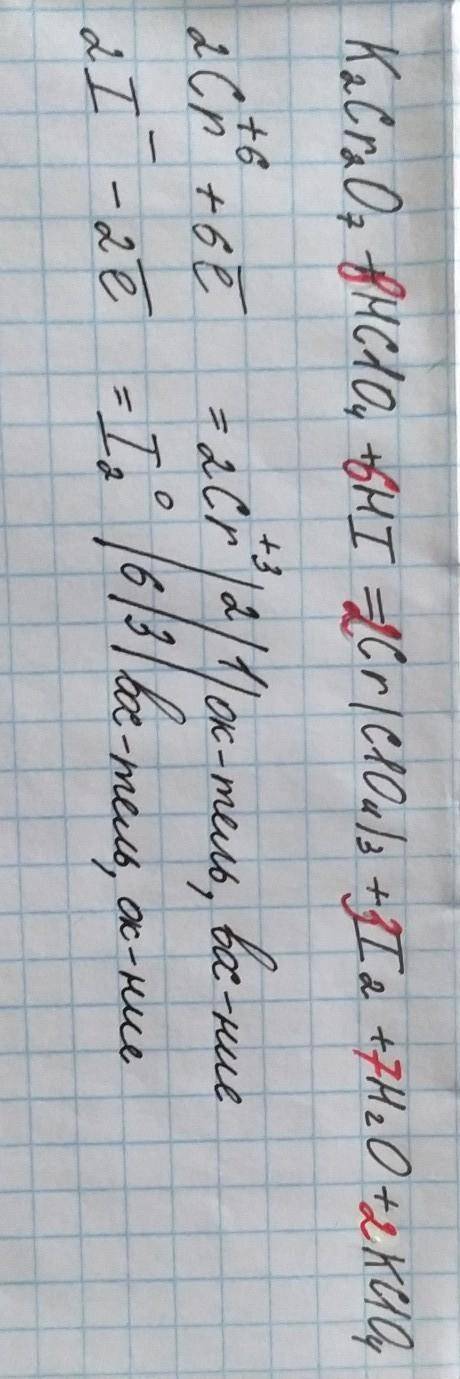 K₂Cr₂O₇ + 8HClO₄ + 6HI = 2Cr(ClO₄)₃ + 3I₂ + 7H₂O + 2KClO₄
2Cr⁺⁶ + 6e̅ = 2Cr⁺³ | 2 | 1 | ок-тель, вос-ние
2I⁻ - 2e̅ = I₂⁰ | 6 | 3 | вос-тель, ок-ние